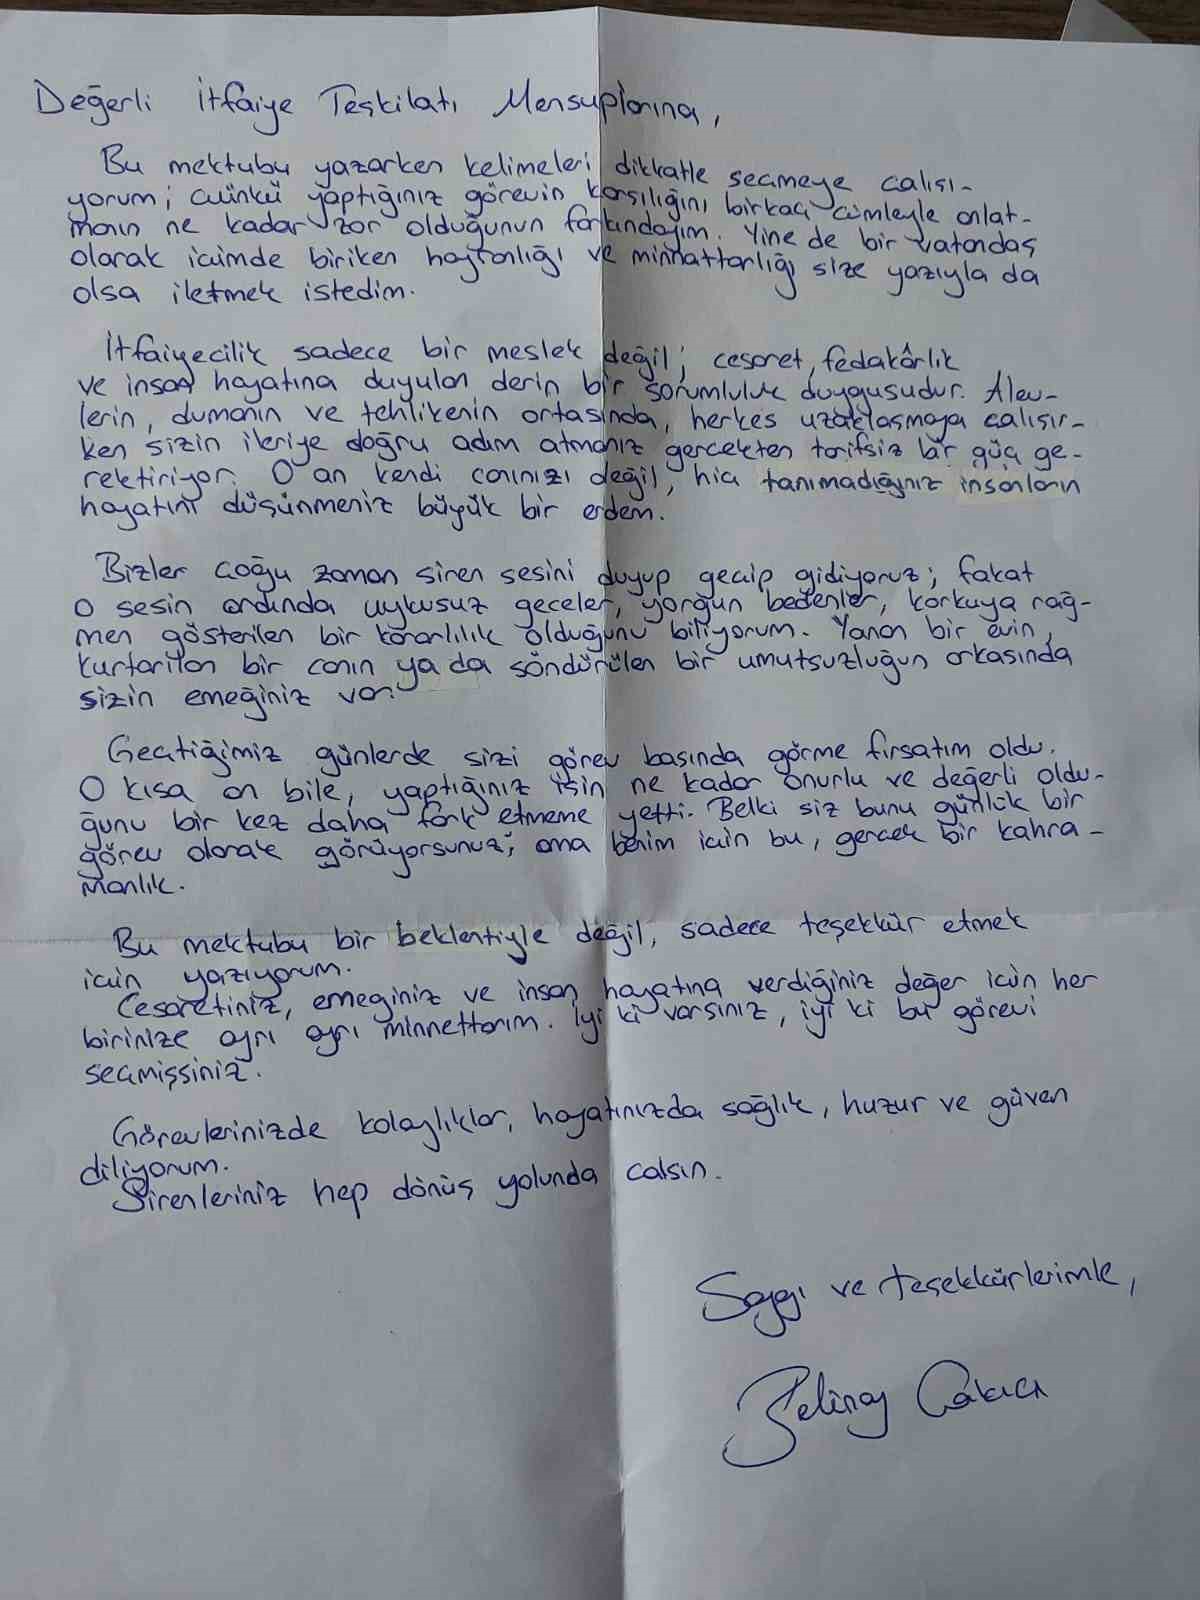 Değerli İtfaiye Teşkilatı Mensuplarına,
Bu mektubu yazarken kelimeleri dikkatle seçmeye çalışı-
yorum; çünkü yaptığınız görevin karşılığını birkaç cümleyle anlat-
manın ne kadar zor olduğunun farkındayım. Yine de bir vatandaş
olarak içimde biriken hayranlığı ve minnattarlığı size yazıyla da
olsa iletmek istedim.
İtfaiyecilik sadece bir meslek değil; cesaret, fedakârlık
ve insan hayatına duyulan derin bir sorumluluk duygusudur. Alev-
lerin, dumanın ve tehlikenin ortasında, herkes uzaklaşmaya çalışır-
ken sizin ileriye doğru adım atmanız gerçekten tarifsiz bir güç ge-
rektiriyor. O an kendi canınızı değil, hiç tanımadığınız insanların
hayatını düşünmeniz büyük bir erdem.
Bizler çoğu zaman siren sesini duyup geçip gidiyoruz; fakat
o sesin ardında uykusuz geceler, yorgun bedenler, korkuya rağ-
men gösterilen bir kararlılık olduğunu biliyorum. Yanan bir evin,
kurtarılan bir canın ya da söndürülen bir umutsuzluğun arkasında
sizin emeğiniz var.
Geçtiğimiz günlerde sizi görev başında görme fırsatım oldu.
O kısa an bile, yaptığınız işin ne kadar onurlu ve değerli oldu-
ğunu bir kez daha fark etmeme yetti. Belki siz bunu günlük bir
görev olarak görüyorsunuz; ama benim için bu, gerçek bir kahra-
manlık.
Bu mektubu bir beklentiyle değil, sadece teşekkür etmek
için yazıyorum.
Cesaretiniz, emeginiz ve insan hayatına verdiğiniz değer için her
birinize ayrı ayrı minnettarım. İyi ki varsınız, iyi ki bu görevi
seçmişsiniz.
Görevlerinizde kolaylıklar, hayatınızda sağlık, huzur ve güven
diliyorum.
Sirenleriniz hep dönüş yolunda çalsın.
Saygı ve teşekkürlerimle,
Selinay Çakıcı